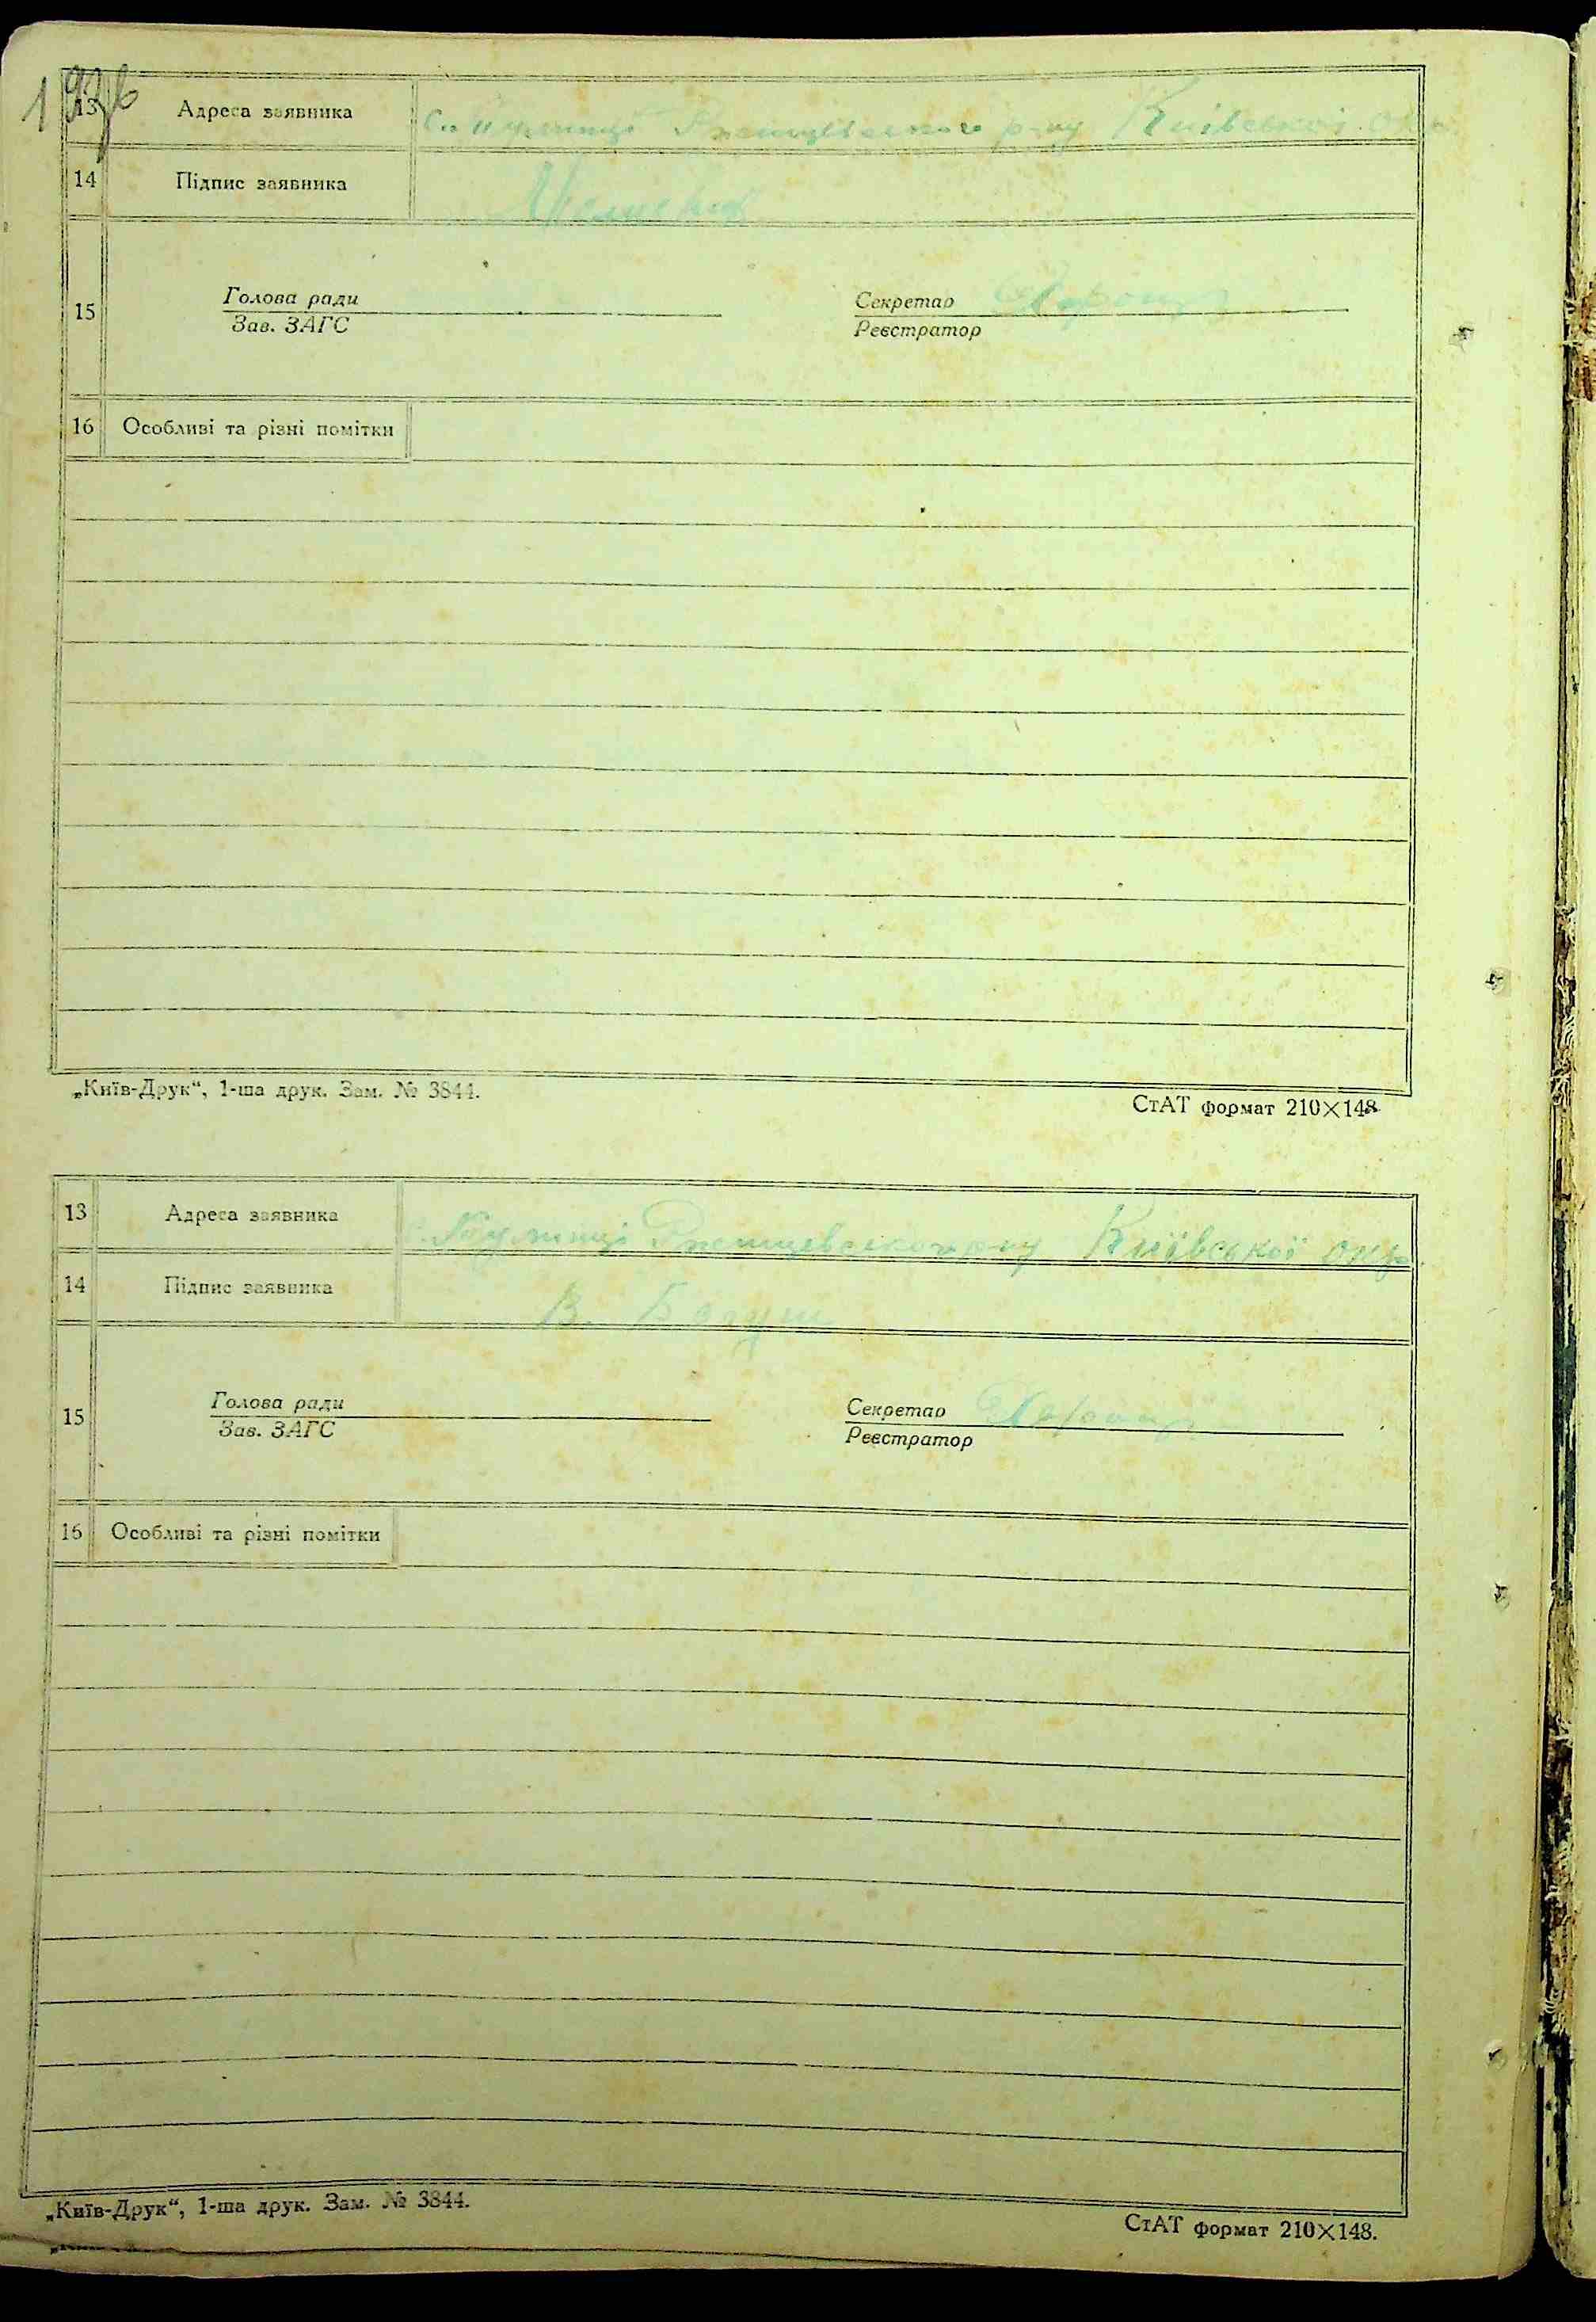 193б
13 Адреса заявника Ржищевського р-ну Київської
14 Підпис заявника
15 Голова ради Секретар
Зав. ЗАГС Реєстратор
16 Особливі та різні помітки
„Київ-Друк“, 1-ша друк. Зам. № 3844.
СтАТ формат 210×148
13 Адреса заявника Ржищевського р-ну Київської окр
14 Підпис заявника В.
15 Голова ради Секретар
Зав. ЗАГС Реєстратор
16 Особливі та різні помітки
„Київ-Друк“, 1-ша друк. Зам. № 3844.
СтАТ формат 210×148.